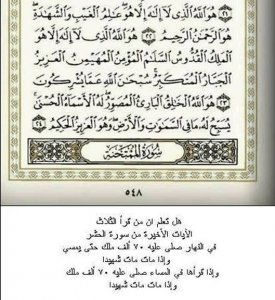 هُوَ اللَّهُ الَّذِي لَا إِلَٰهَ إِلَّا هُوَ عَالِمُ الْغَيْبِ وَالشَّهَادَةِ
هُوَ الرَّحْمَٰنُ الرَّحِيمُ ٢٢ هُوَ اللَّهُ الَّذِي لَا إِلَٰهَ إِلَّا هُوَ
الْمَلِكُ الْقُدُّوسُ السَّلَامُ الْمُؤْمِنُ الْمُهَيْمِنُ الْعَزِيزُ
الْجَبَّارُ الْمُتَكَبِّرُ سُبْحَانَ اللَّهِ عَمَّا يُشْرِكُونَ
٢٣ هُوَ اللَّهُ الْخَالِقُ الْبَارِئُ الْمُصَوِّرُ لَهُ الْأَسْمَاءُ الْحُسْنَىٰ
يُسَبِّحُ لَهُ مَا فِي السَّمَاوَاتِ وَالْأَرْضِ وَهُوَ الْعَزِيزُ الْحَكِيمُ ٢٤
سُورَةُ الْمُمْتَحَنَةِ
٥٤٨
هل تعلم ان من قرأ الثلاث
الآيات الأخيرة من سورة الحشر
في النهار صلى عليه ٧٠ ألف ملك حتى يمسي
وإذا مات مات شهيدا
وإذا قرأها في المساء صلى عليه ٧٠ ألف ملك
وإذا مات مات شهيدا